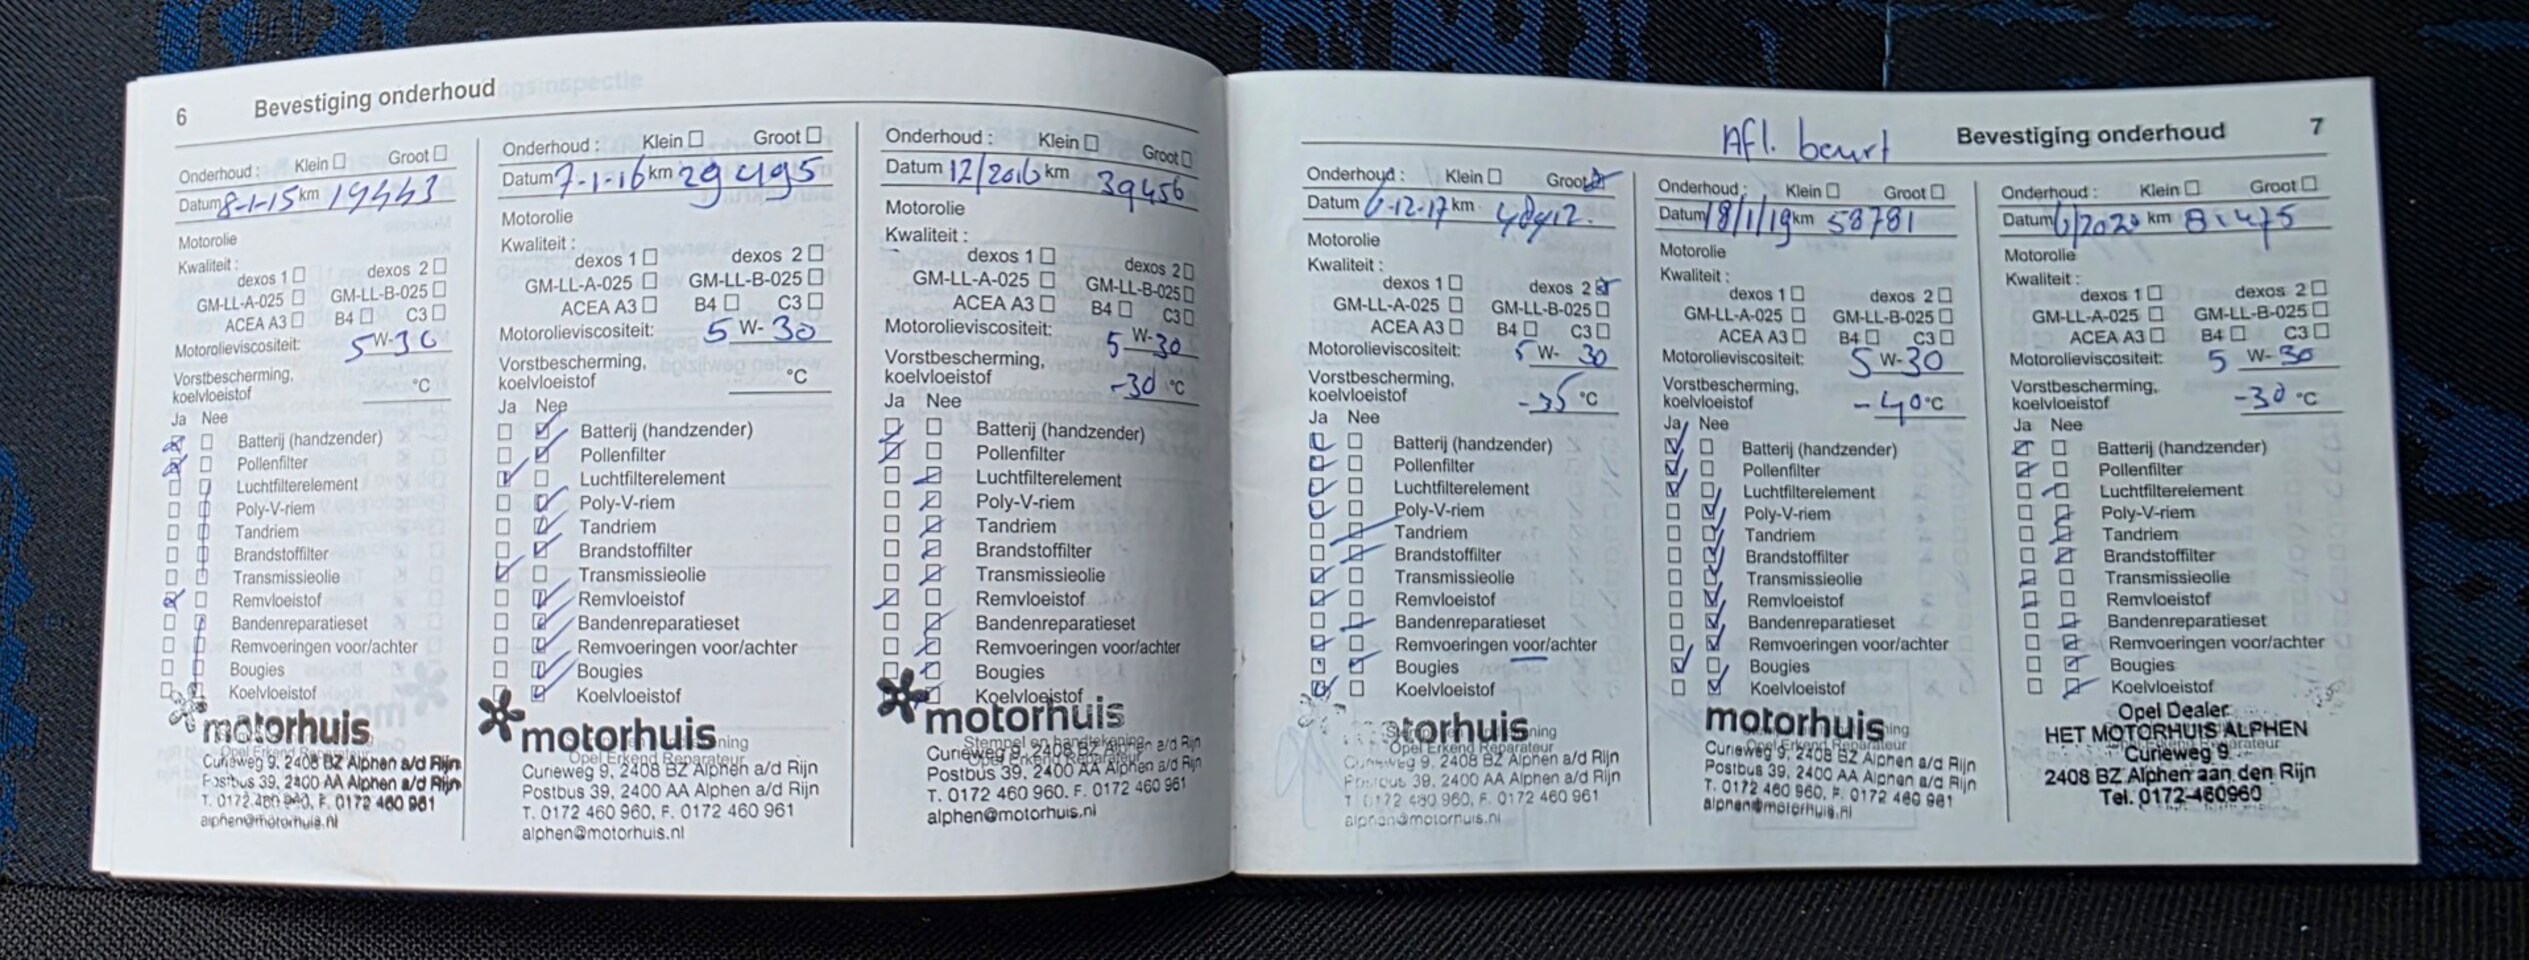 6 Bevestiging onderhoud
Onderhoud : Klein Groot
Datum 8-1-15 km 19443
Motorolie
Kwaliteit :
dexos 1 dexos 2
GM-LL-A-025 GM-LL-B-025
ACEA A3 B4 C3
Motorolieviscositeit: 5 W-30
Vorstbescherming,
koelvloeistof °C
Ja Nee
Batterij (handzender)
Pollenfilter
Luchtfilterelement
Poly-V-riem
Tandriem
Brandstoffilter
Transmissieolie
Remvloeistof
Bandenreparatieset
Remvoeringen voor/achter
Bougies
Koelvloeistof
motorhuis
Opel Erkend Reparateur
Curieweg 9, 2408 BZ Alphen a/d Rijn
Postbus 39, 2400 AA Alphen a/d Rijn
T. 0172 460 960, F. 0172 460 961
alphen@motorhuis.nl
Onderhoud : Klein Groot
Datum 7-1-16 km 29495
Motorolie
Kwaliteit :
dexos 1 dexos 2
GM-LL-A-025 GM-LL-B-025
ACEA A3 B4 C3
Motorolieviscositeit: 5 W-30
Vorstbescherming,
koelvloeistof °C
Ja Nee
Batterij (handzender)
Pollenfilter
Luchtfilterelement
Poly-V-riem
Tandriem
Brandstoffilter
Transmissieolie
Remvloeistof
Bandenreparatieset
Remvoeringen voor/achter
Bougies
Koelvloeistof
motorhuis
Opel Erkend Reparateur
Curieweg 9, 2408 BZ Alphen a/d Rijn
Postbus 39, 2400 AA Alphen a/d Rijn
T. 0172 460 960, F. 0172 460 961
alphen@motorhuis.nl
Onderhoud : Klein Groot
Datum 12/2016 km 39456
Motorolie
Kwaliteit :
dexos 1 dexos 2
GM-LL-A-025 GM-LL-B-025
ACEA A3 B4 C3
Motorolieviscositeit: 5 W-30
Vorstbescherming,
koelvloeistof -30 °C
Ja Nee
Batterij (handzender)
Pollenfilter
Luchtfilterelement
Poly-V-riem
Tandriem
Brandstoffilter
Transmissieolie
Remvloeistof
Bandenreparatieset
Remvoeringen voor/achter
Bougies
Koelvloeistof
motorhuis
Stempel en handtekening
Opel Erkend Reparateur
Curieweg 9, 2408 BZ Alphen a/d Rijn
Postbus 39, 2400 AA Alphen a/d Rijn
T. 0172 460 960. F. 0172 460 961
alphen@motorhuis.nl
Afl. beurt Bevestiging onderhoud 7
Onderhoud : Klein Groot
Datum 6-12-17 km
Motorolie
Kwaliteit :
dexos 1 dexos 2
GM-LL-A-025 GM-LL-B-025
ACEA A3 B4 C3
Motorolieviscositeit: 5 W- 30
Vorstbescherming,
koelvloeistof -35 °C
Ja Nee
Batterij (handzender)
Pollenfilter
Luchtfilterelement
Poly-V-riem
Tandriem
Brandstoffilter
Transmissieolie
Remvloeistof
Bandenreparatieset
Remvoeringen voor/achter
Bougies
Koelvloeistof
torhuis
Opel Erkend Reparateur
Curieweg 9, 2408 BZ Alphen a/d Rijn
Postbus 39, 2400 AA Alphen a/d Rijn
T. 0172 460 960, F. 0172 460 961
alphen@motorhuis.nl
Onderhoud : Klein Groot
Datum 18/1/19 km 58781
Motorolie
Kwaliteit :
dexos 1 dexos 2
GM-LL-A-025 GM-LL-B-025
ACEA A3 B4 C3
Motorolieviscositeit: 5 W-30
Vorstbescherming,
koelvloeistof -40 °C
Ja Nee
Batterij (handzender)
Pollenfilter
Luchtfilterelement
Poly-V-riem
Tandriem
Brandstoffilter
Transmissieolie
Remvloeistof
Bandenreparatieset
Remvoeringen voor/achter
Bougies
Koelvloeistof
motorhuis
Opel Erkend Reparateur
Curieweg 9, 2408 BZ Alphen a/d Rijn
Postbus 39, 2400 AA Alphen a/d Rijn
T. 0172 460 960, F. 0172 460 961
alphen@motorhuis.nl
Onderhoud : Klein Groot
Datum 6/2020 km
Motorolie
Kwaliteit :
dexos 1 dexos 2
GM-LL-A-025 GM-LL-B-025
ACEA A3 B4 C3
Motorolieviscositeit: 5 W- 30
Vorstbescherming,
koelvloeistof -30 °C
Ja Nee
Batterij (handzender)
Pollenfilter
Luchtfilterelement
Poly-V-riem
Tandriem
Brandstoffilter
Transmissieolie
Remvloeistof
Bandenreparatieset
Remvoeringen voor/achter
Bougies
Koelvloeistof
Opel Dealer
HET MOTORHUIS ALPHEN
Curieweg 9
2408 BZ Alphen aan den Rijn
Tel. 0172-460960